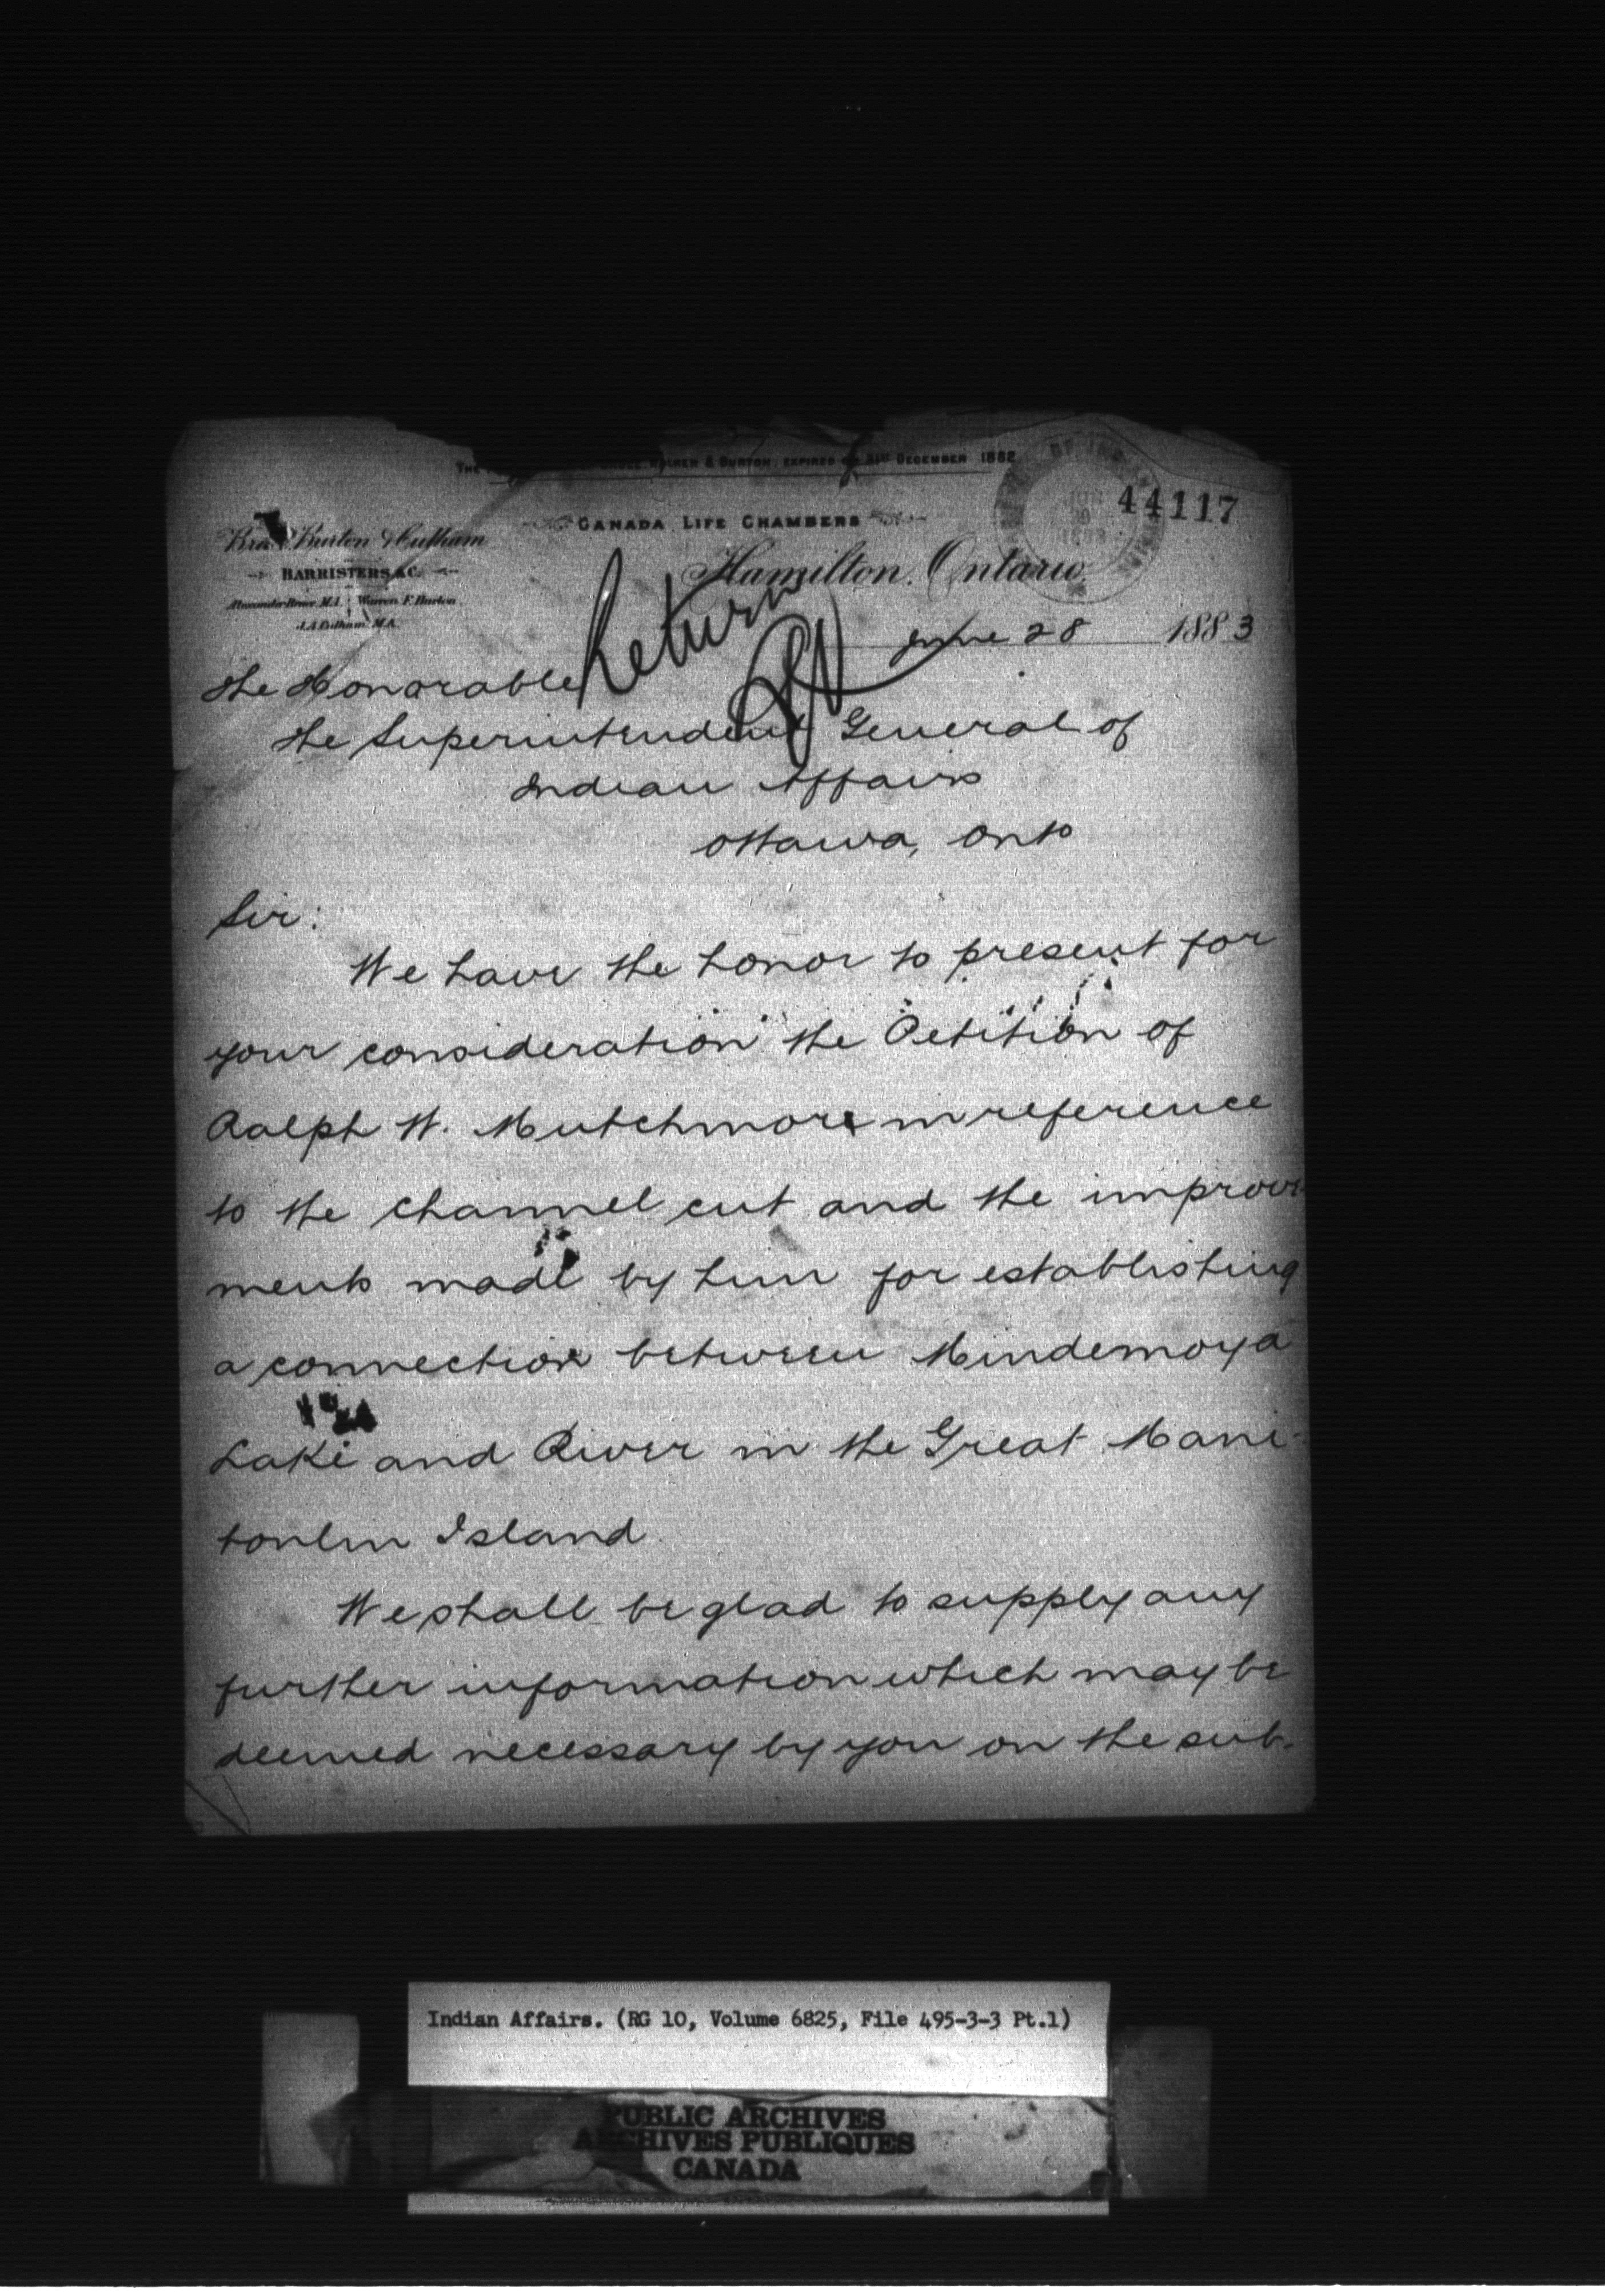 THE WALKER & BURTON, EXPIRED ON 31ST DECEMBER 1882
44117
CANADA LIFE CHAMBERS
Burton & Culham
BARRISTERS &C.
Hamilton, Ontario,
Alexander Bruce M.A. Warren F. Burton
J.A. Culham M.A.
Return
June 28 1883
The Honorable
The Superintendent General of
Indian Affairs
Ottawa, Onto
Sir:
We have the honor to present for
your consideration the Petition of
Ralph W. Mutchmore in reference
to the channel cut and the improve-
ments made by him for establishing
a connection between Mindemoya
Lake and River in the Great Mani-
toulin Island.
We shall be glad to supply any
further information which may be
deemed necessary by you on the sub-
Indian Affairs. (RG 10, Volume 6825, File 495-3-3 Pt.1)
PUBLIC ARCHIVES
ARCHIVES PUBLIQUES
CANADA